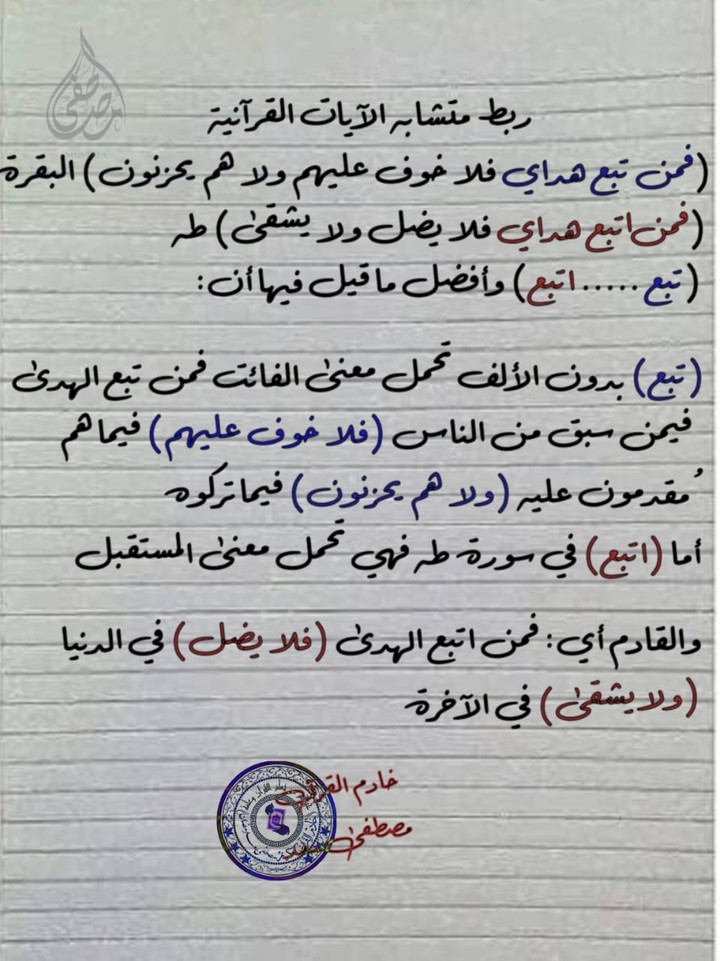 ربط متشابه الآيات القرآنية
(فمن تبع هداي فلا خوف عليهم ولا هم يحزنون) البقرة
(فمن اتبع هداي فلا يضل ولا يشقىٰ) طه
(تبع ..... اتبع) وأفضل ما قيل فيها أن:
(تبع) بدون الألف تحمل معنىٰ الفائت فمن تبع الهدىٰ
فيمن سبق من الناس (فلا خوف عليهم) فيما هم
مُقدمون عليه (ولا هم يحزنون) فيما تركوه
أما (اتبع) في سورة طه فهي تحمل معنىٰ المستقبل
والقادم أي: فمن اتبع الهدىٰ (فلا يضل) في الدنيا
(ولا يشقىٰ) في الآخرة
خادم القرآن
مصطفىٰ